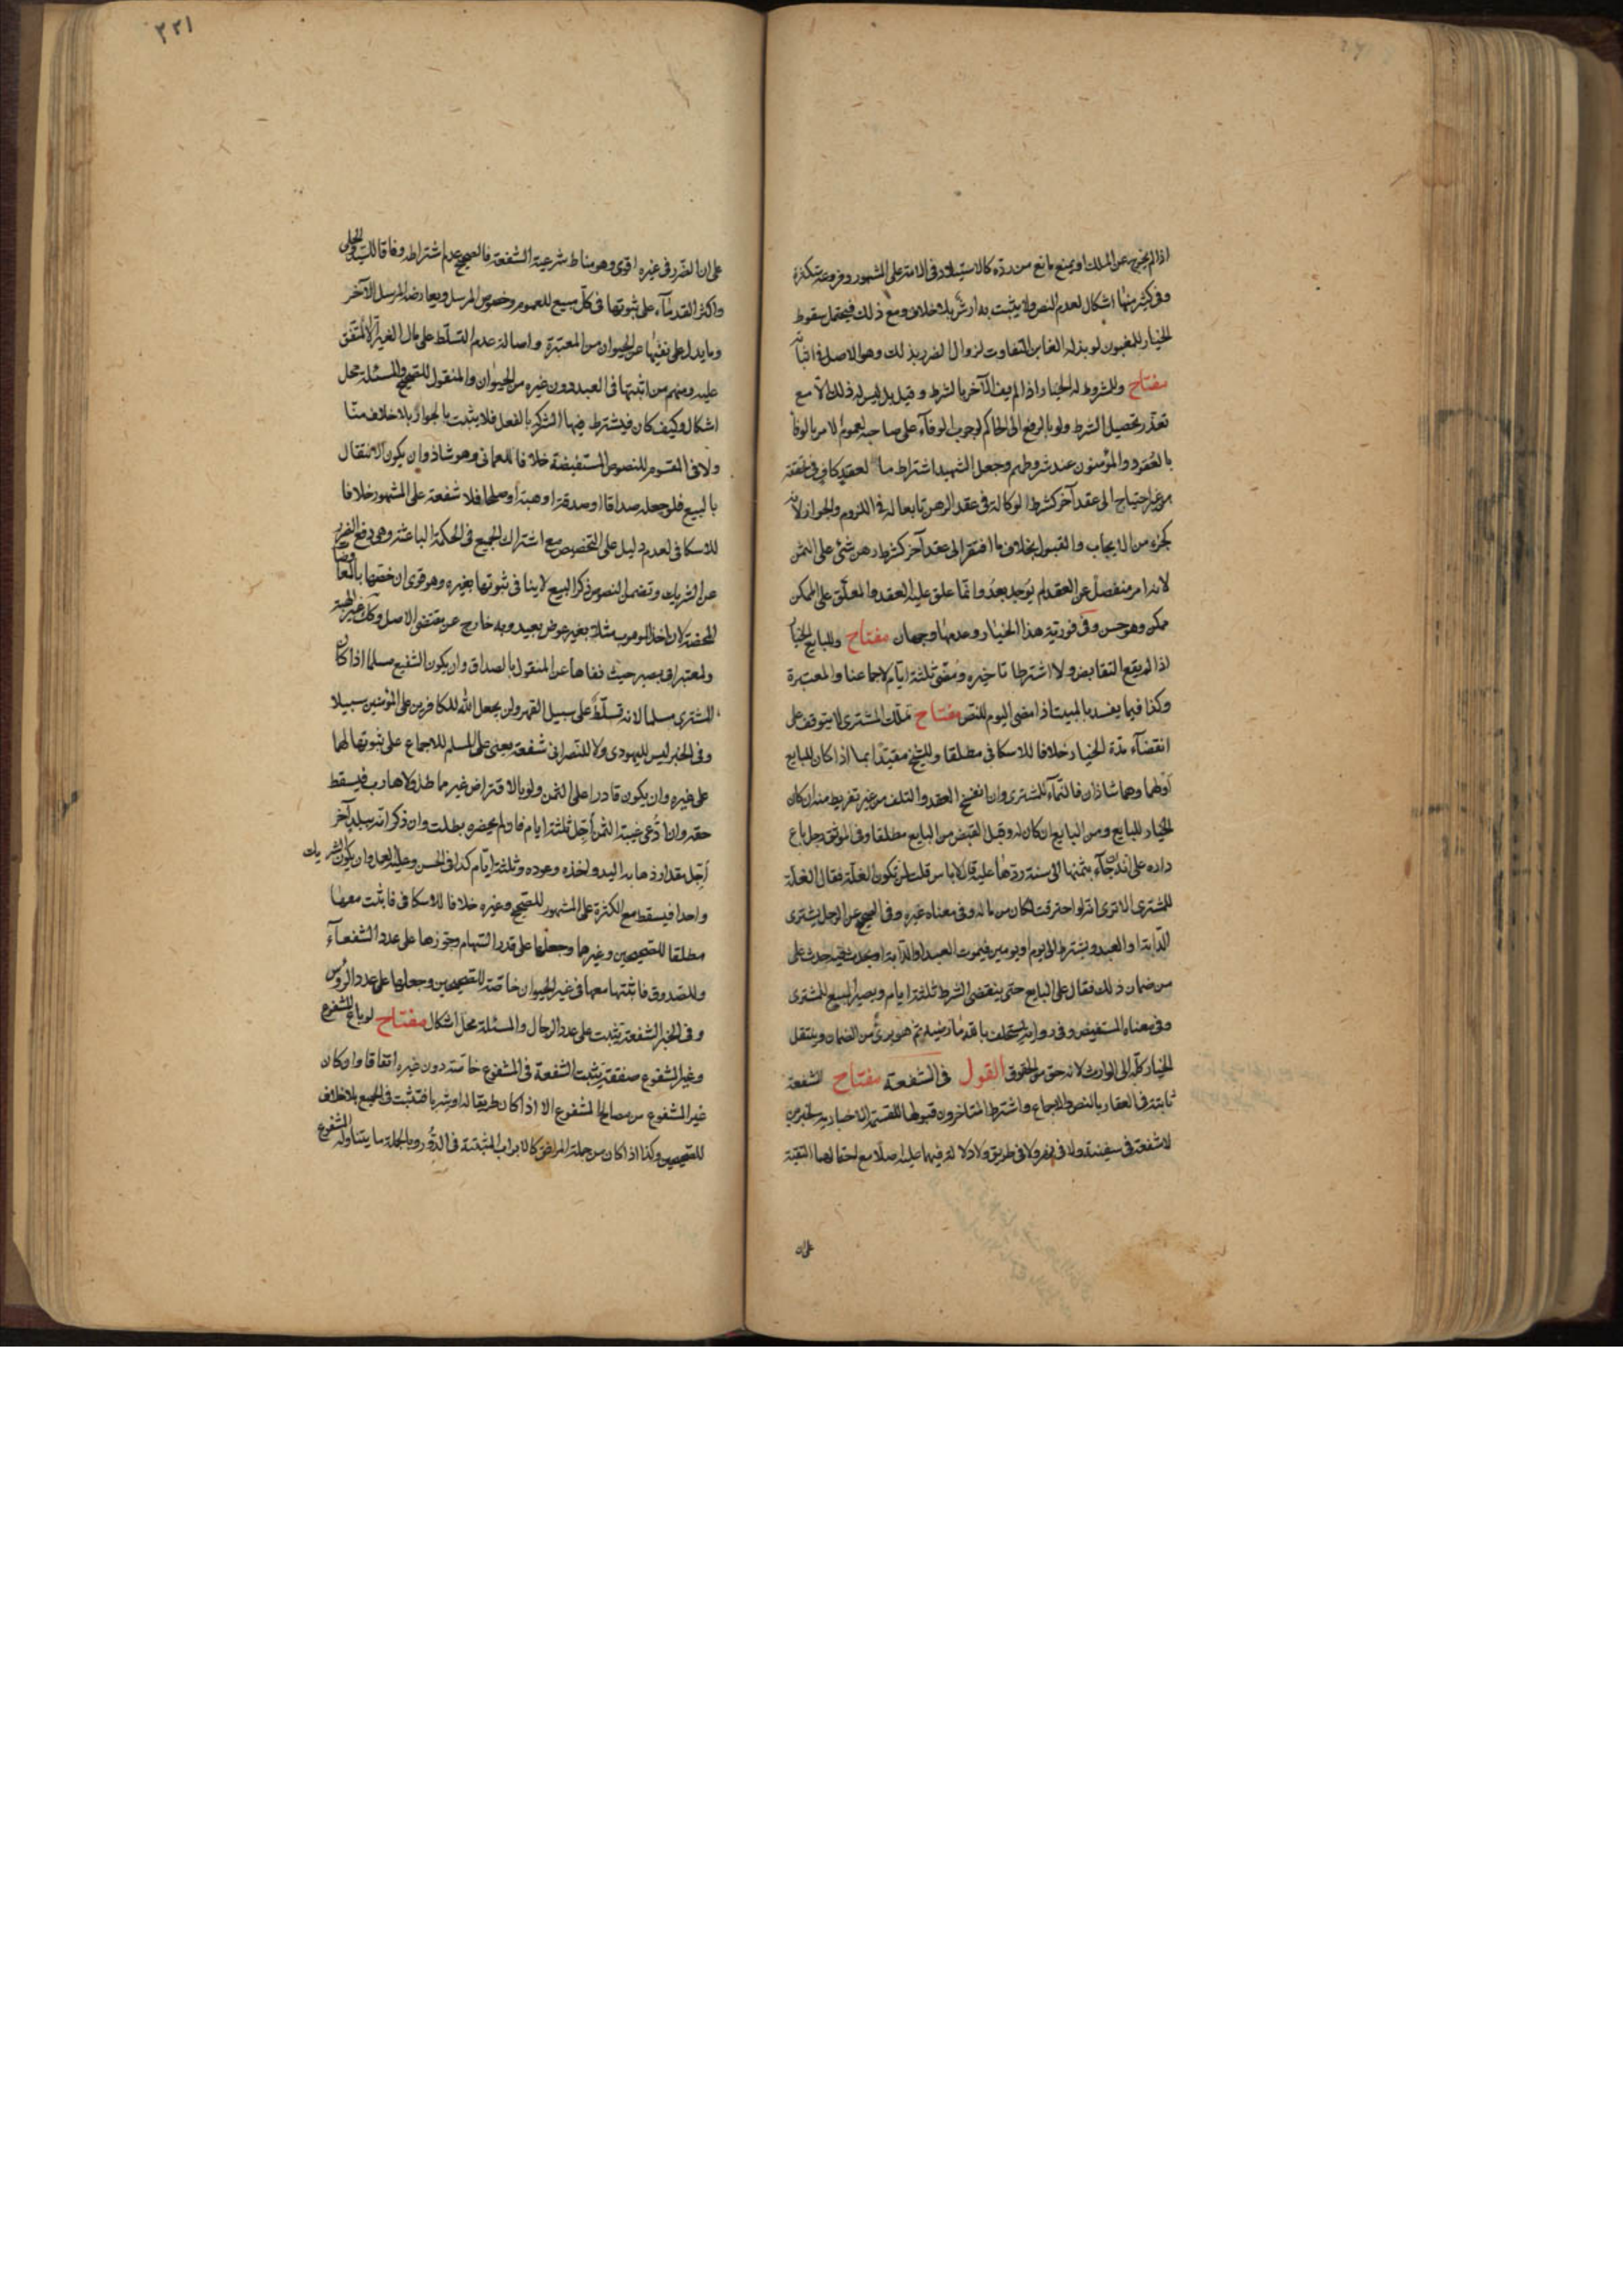 اذا لم يخرج عن الملك او يمنع مانع من رده كالاستيلاد فى الامة على المشهور وفروعه متكثرة
وفى كثير منها اشكال لعدم النص ولا يثبت به ارش بلا خلاف ومع ذلك فيحتمل سقوط
الخيار للمغبون لو بذل له الغابن التفاوت لزوال الضرر بذلك وهو الاصل فى اثباته
مفتاح وللمشروط له الخيار اذا لم يف الآخر بالشرط وقيل بل ليس له ذلك الا مع
تعذر تحصيل الشرط ولو بالرفع الى الحاكم لوجوب الوفاء على صاحبه لعموم الامر بالوفا
بالعقود والمؤمنون عند شروطهم وجعل الشهيد اشتراط ما العقد كاف فى تحققه
من غير احتياج الى عقد آخر كشرط الوكالة فى عقد الرهن تابعا له فى اللزوم والجواز لانه
كجزء من الايجاب والقبول بخلاف ما افتقر الى عقد آخر كشرط رهن شئ على الثمن
لانه امر منفصل عن العقد لم يوجد بعد وانما علق عليه العقد والمعلق على الممكن
ممكن وهو حسن وفى فورية هذا الخيار وعدمها وجهان مفتاح وللبايع الخيار
اذا لم يقع التقابض ولا اشترطا تاخيره ومضى ثلثة ايام لاجماعنا والمعتبرة
وكذا فيما يفسد بالمبيت اذا مضى اليوم للنص مفتاح تملك المشترى لا يتوقف على
انقضآء مدة الخيار خلافا للاسكافى مطلقا وللشيخ مقيدا بما اذا كان للبايع
او لهما وهما شاذان فالنمآء للمشترى وان انفسخ العقد والتلف من غير تفريط منه ان كان
الخيار للبايع ومن البايع ان كان له وقبل القبض من البايع مطلقا وفى الموثق رجل باع
داره على انه ان جآء بثمنها الى سنة ردها عليه قال لا باس قلت لمن تكون الغلة فقال الغلة
للمشترى الا ترى انه لو احترقت لكان من ماله وفى معناه غيره وفى الصحيح عن الرجل يشترى
الدابة او العبد ويشترط الى يوم او يومين فيموت العبد او الدابة او يحدث فيه حدث على
من ضمان ذلك فقال على البايع حتى ينقضى الشرط ثلثة ايام ويصير المبيع للمشترى
وفى معناه المستفيض وفى رواية يستحلف بالله ما رضيه ثم هو برئ من الضمان وينتقل
الخيار كله الى الوارث لانه حق من الحقوق القول فى الشفعة مفتاح الشفعة
ثابتة فى العقار بالنص والاجماع واشترط المتاخرون قبولها للقسمة الاختيارية لخبرين
لا شفعة فى سفينة ولا فى نهر ولا فى طريق ولا دلالة فيهما عليه اصلا مع احتمالهما التقية
على ان
٢٢١
على ان الضرر فى غيره اقوى وهو مناط شرعية الشفعة فالصحيح عدم اشتراطه وفاقا للسيد والحلى
واكثر القدمآء على ثبوتها فى كل مبيع للعموم وخصوص المرسل ويعارضه المرسل الآخر
وما يدل على نفيها عن الحيوان من المعتبرة واصالة عدم التسلط على مال الغير الا المتفق
عليه ومنهم من اثبتها فى العبد دون غيره من الحيوان والمنقول للصحيح والمسئلة محل
اشكال وكيف كان فيشترط فيها الشركة بالفعل فلا يثبت بالجوار بلا خلاف منا
ولا فى المقسوم للنصوص المستفيضة خلافا للعمانى وهو شاذ وان يكون الانتقال
بالبيع فلو جعله صداقا او صدقة او هبة او صلحا فلا شفعة على المشهور خلافا
للاسكافى لعدم دليل على التخصيص مع اشتراك الجميع فى الحكمة الباعثة وهى دفع الضرر
عن الشريك وتضمن النصوص ذكر البيع لا ينافى ثبوتها بغيره وهو قوى ان خصها بالمعاوضات
المحضة لان اخذ الموهوب مثلا بغير عوض بعيد وبه خارج عن مقتضى الاصل وكذا غير الهبة
ولمعتبر ابى بصير حيث نفاها عن المنقول بالصداق وان يكون الشفيع مسلما اذا كان
المشترى مسلما لانه تسلط على سبيل القهر ولن يجعل الله للكافرين على المؤمنين سبيلا
وفى الخبر ليس لليهودى ولا للنصرانى شفعة يعنى على المسلم للاجماع على ثبوتها لهما
على غيره وان يكون قادرا على الثمن ولو بالاقتراض غير مماطل ولا هارب فيسقط
حقه وان ادعى غيبة الثمن اجل ثلثة ايام فان لم يحضره بطلت وان ذكر انه ببلد آخر
اجل مقدار ذهابه اليه واخذه وعوده وثلثة ايام كذا فى الحسن وعليه العمل وان يكون الشريك
واحدا فيسقط مع الكثرة على المشهور للصحيح وغيره خلافا للاسكافى فاثبت معها
مطلقا للصحيحين وغيرهما وجعلها على قدر السهام وجوزها على عدد الشفعآء
وللصدوق فاثبتها معها فى غير الحيوان خاصة للصحيحين وجعلها على عدد الرؤس
وفى الخبر الشفعة يثبت على عدد الرجال والمسئلة محل اشكال مفتاح لو باع المشفوع
وغير المشفوع صفقة يثبت الشفعة فى المشفوع خاصة دون غيره اتفاقا ولو كان
غير المشفوع من مصالح المشفوع الا اذا كان طريقا له او شربا فتثبت فى الجميع بلا خلاف
للصحيح وكذا اذا كان من جملة المرافق كالابواب المثبتة فى الدور وبالجملة ما يتناوله المشفوع